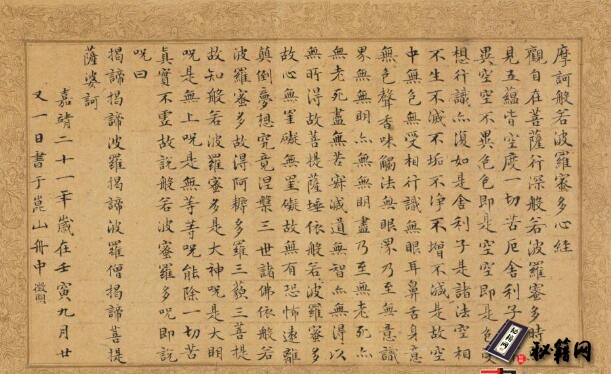 摩訶般若波羅蜜多心經
觀自在菩薩行深般若波羅蜜多時
見五蘊皆空度一切苦厄舍利子
異空空不異色色即是空空即是色受
想行識亦復如是舍利子是諸法空相
不生不滅不垢不淨不增不減是故空
中無色無受相行識無眼耳鼻舌身意
無色聲香味觸法無眼界乃至無意識
界無無明亦無無明盡乃至無老死亦
無老死盡無苦集滅道無智亦無得以
無所得故菩提薩埵依般若波羅蜜多
故心無罣礙無罣礙故無有恐怖遠離
顛倒夢想究竟涅槃三世諸佛依般若
波羅蜜多故得阿耨多羅三藐三菩提
故知般若波羅蜜多是大神呪是大明
呪是無上呪是無等等呪能除一切苦
真實不虛故說般若波蜜羅多呪即說
呪曰
揭諦揭諦波羅揭諦波羅僧揭諦菩提
薩婆訶
嘉靖二十一年歲在壬寅九月廿
又一日書于崑山舟中 徵明
秘籍网